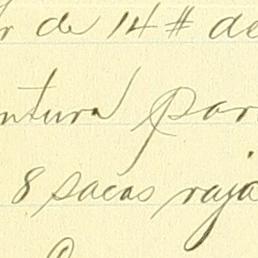 r de 14 # de
ntura par
8 sacas raja